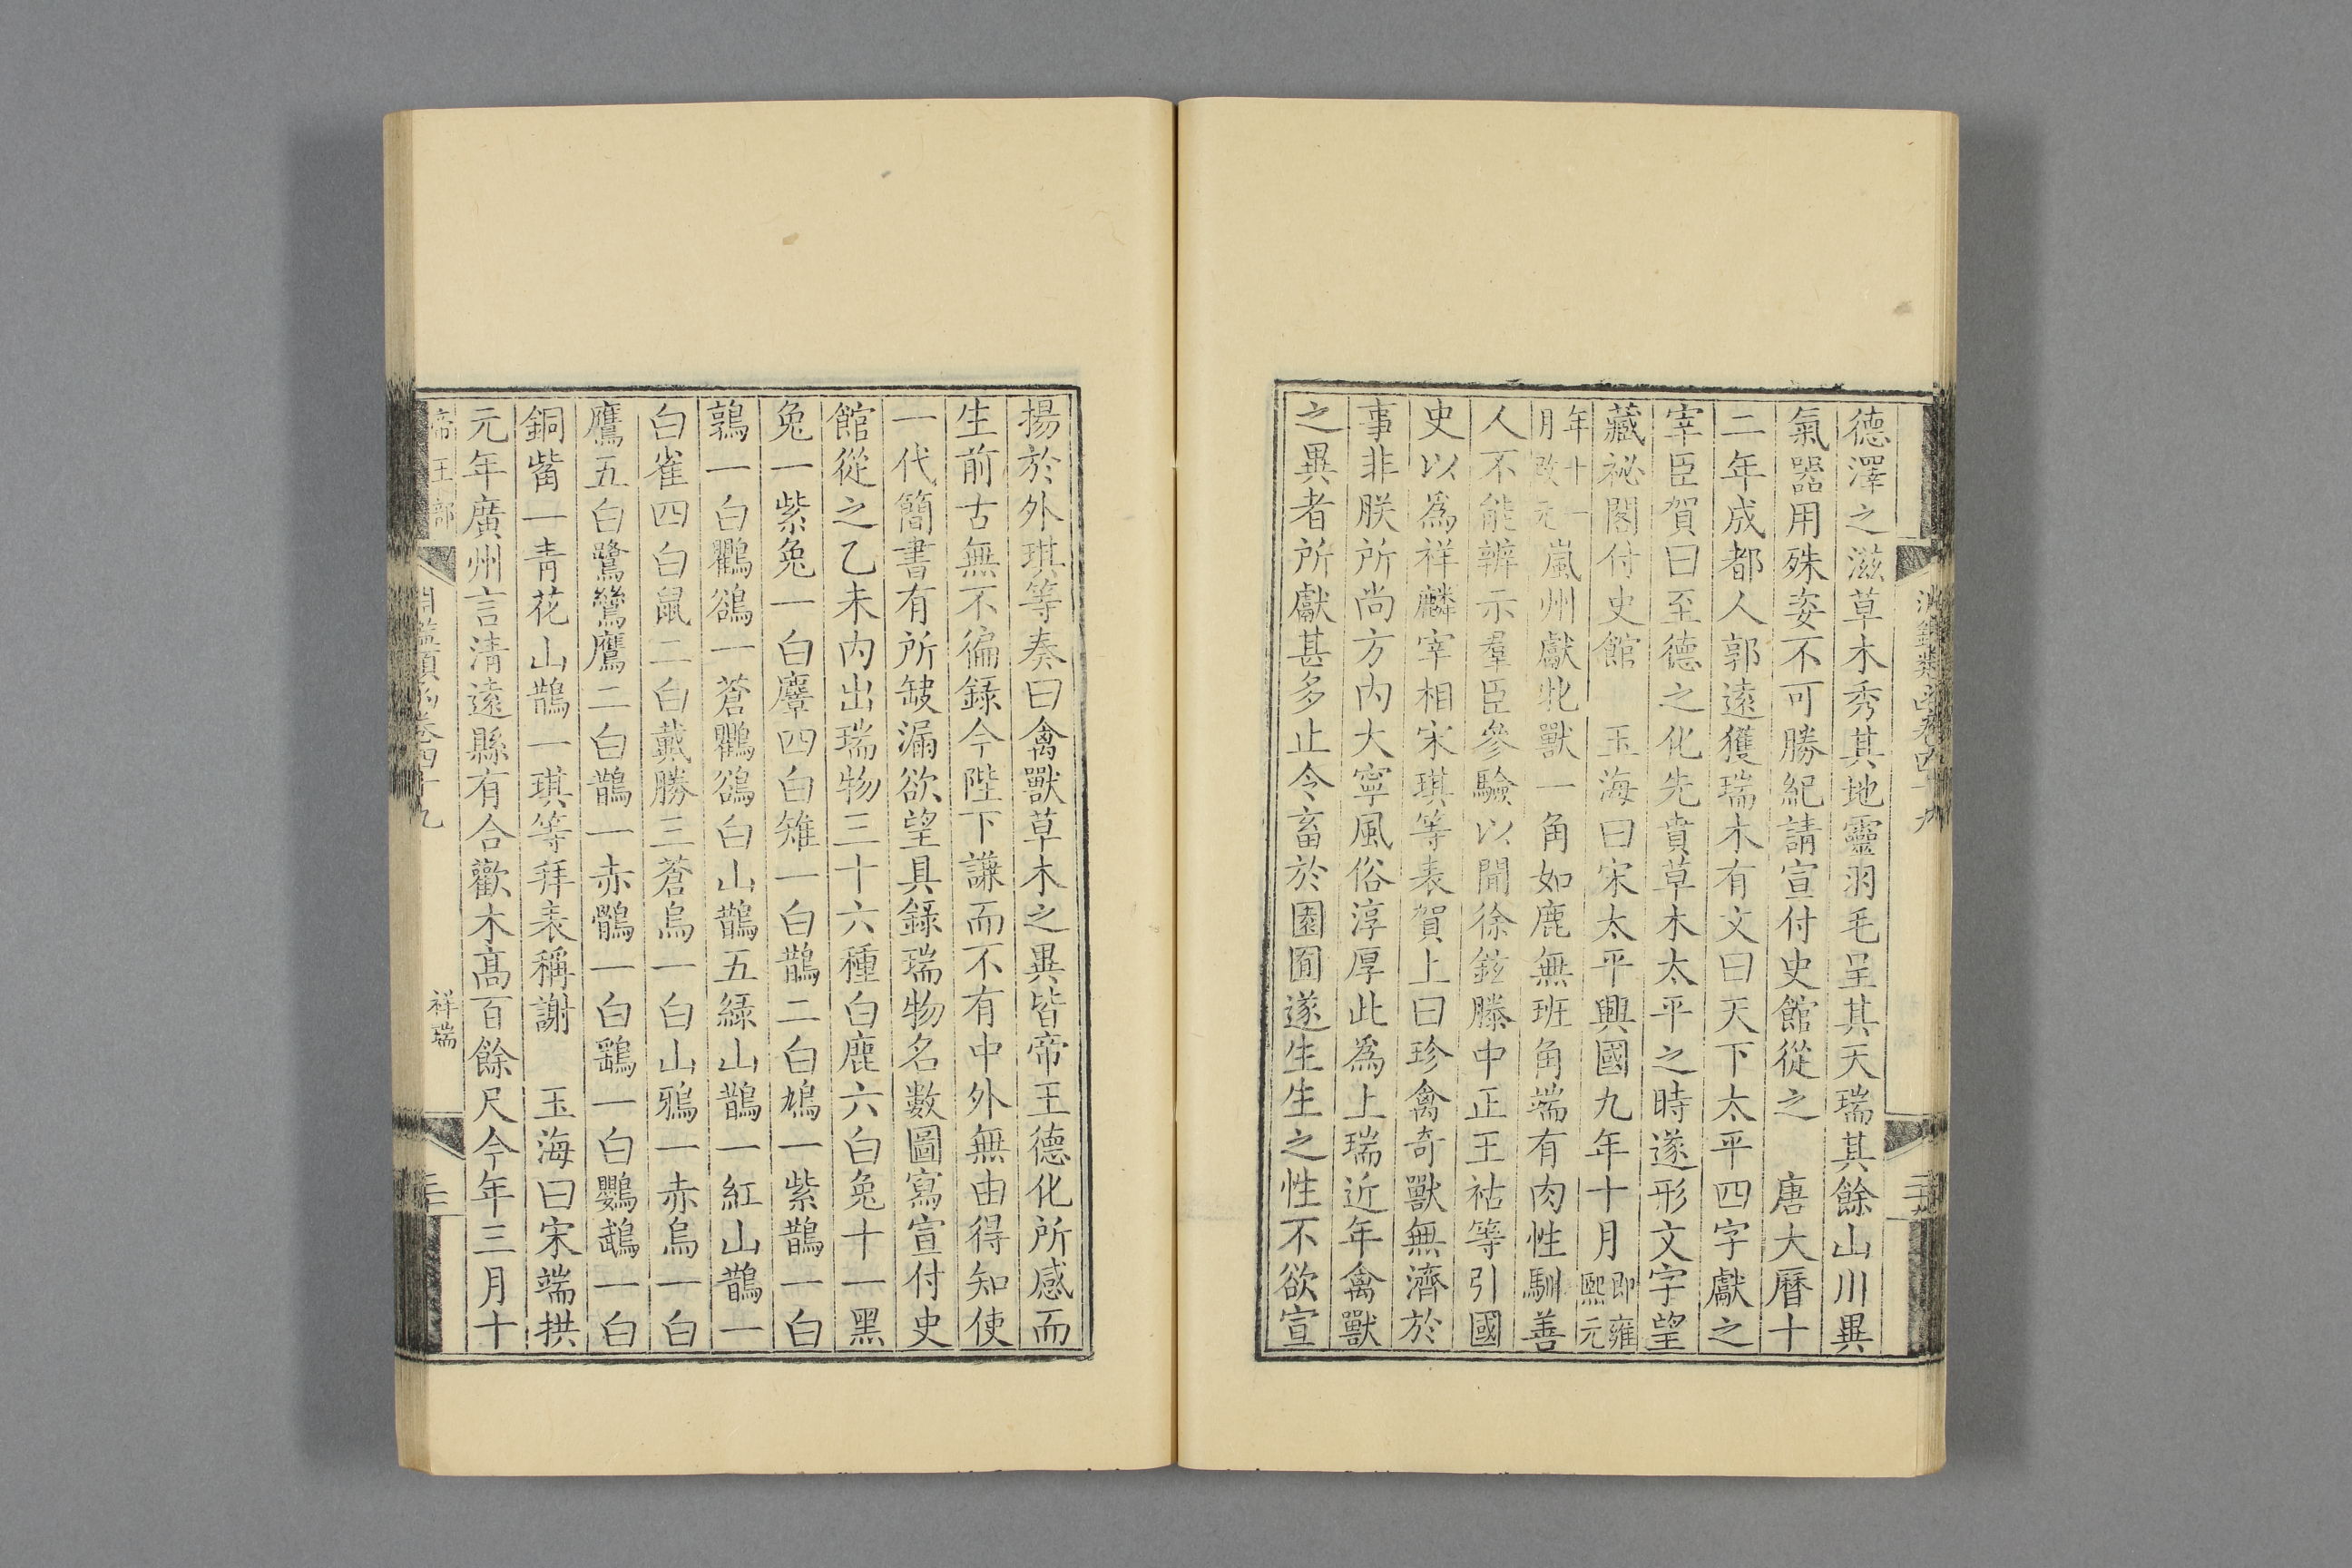 德澤之滋草木秀其地靈羽毛呈其天瑞其餘山川異
氣器用殊姿不可勝紀請宣付史館從之　唐大曆十
二年成都人郭遠獲瑞木有文曰天下太平四字獻之
宰臣賀曰至德之化先賁草木太平之時遂形文字望
藏祕閣付史館　玉海曰宋太平興國九年十月即雍熙元
年十一月改元嵐州獻牝獸一角如鹿無班角端有肉性馴善
人不能辨示羣臣參驗以聞徐鉉滕中正王祜等引國
史以為祥麟宰相宋琪等表賀上曰珍禽奇獸無濟於
事非朕所尚方內大寧風俗淳厚此為上瑞近年禽獸
之異者所獻甚多止令畜於園囿遂生生之性不欲宣
揚於外琪等奏曰禽獸草木之異皆帝王德化所感而
生前古無不徧錄今陛下謙而不有中外無由得知使
一代簡書有所缺漏欲望具錄瑞物名數圖寫宣付史
館從之乙未內出瑞物三十六種白鹿六白兔十一黑
兔一紫兔一白麞四白雉一白鵲二白鳩一紫鵲一白
鶉一白鸜鵒一蒼鸜鵒白山鵲五綠山鵲一紅山鵲一
白雀四白鼠二白戴勝三蒼烏一白山鴉一赤烏一白
鷹五白鷺鷥鷹二白鵲一赤鶻一白鷂一白鸚鵡一白
銅觜一青花山鵲一琪等拜表稱謝　玉海曰宋端拱
元年廣州言清遠縣有合歡木高百餘尺今年三月十
帝王部
淵鑑類函卷四十九
祥瑞